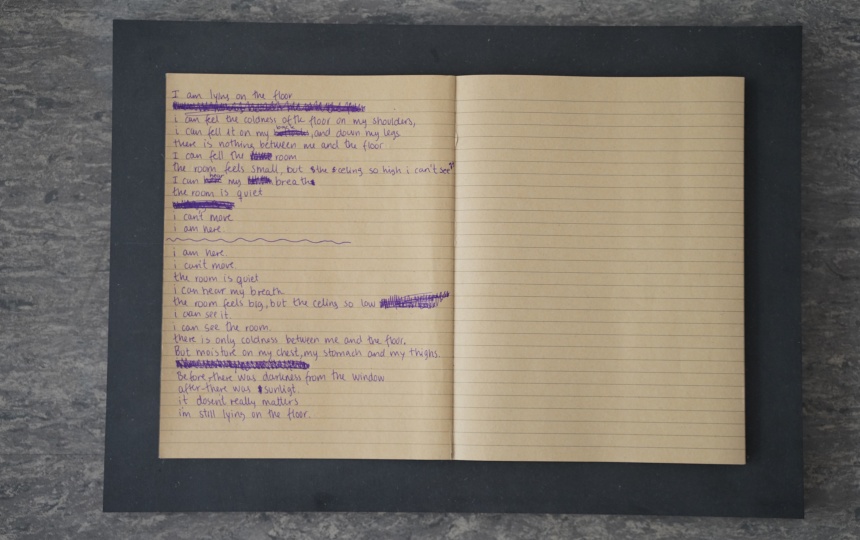 I am lying on the floor
i can feel the coldness of the floor on my shoulders,
i can fell it on my back, and down my legs
there is nothing between me and the floor
I can fell the room
the room feels small, but the celing so high i can't see it
I can hear my breath
the room is quiet
i can't move
i am here.
i am here.
i can't move
the room is quiet
i can hear my breath
the room feels big, but the celing so low
i can see it.
i can see the room.
there is only coldness between me and the floor.
But moisture on my chest, my stomach and my thighs.
Before, there was darkness from the window
after-there was sunligt.
it dosend really matters
i'm still lying on the floor.